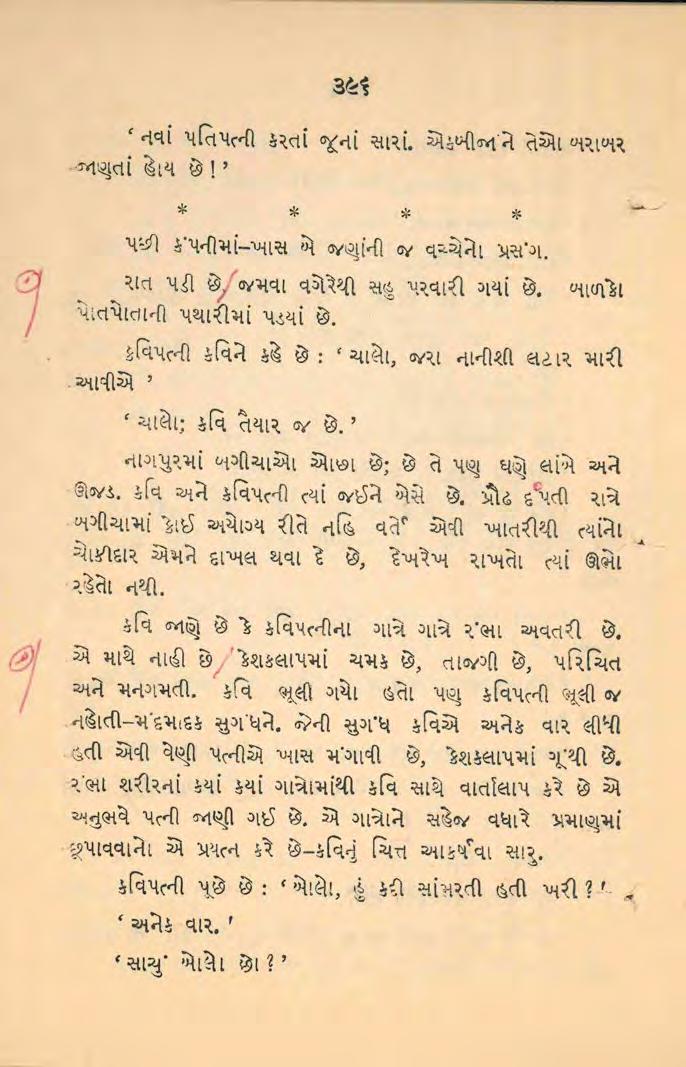 ૩૯૬
‘નવાં પતિપત્ની કરતાં જૂનાં સારાં. એકબીજાને તેઓ બરાબર
જાણતાં હોય છે!’
* * * *
પછી કંપનીમાં–ખાસ બે જણાંની જ વચ્ચેનો પ્રસંગ.
રાત પડી છે, જમવા વગેરેથી સહુ પરવારી ગયાં છે. બાળકો
પોતપોતાની પથારીમાં પડયાં છે.
કવિપત્ની કવિને કહે છે : ‘ચાલો, જરા નાનીશી લટાર મારી
આવીએ ’
‘ચાલો; કવિ તૈયાર જ છે.’
નાગપુરમાં બગીચાઓ ઓછા છે; છે તે પણ ઘણે લાંબે અને
ઊજડ. કવિ અને કવિપત્ની ત્યાં જઈને બેસે છે. પ્રૌઢ દંપતી રાત્રે
બગીચામાં કોઈ અયોગ્ય રીતે નહિ વર્તે એવી ખાતરીથી ત્યાંનો
ચોકીદાર એમને દાખલ થવા દે છે, દેખરેખ રાખતો ત્યાં ઊભો
રહેતો નથી.
કવિ જાણે છે કે કવિપત્નીના ગાત્રે ગાત્રે રંભા અવતરી છે.
એ માથે નાહી છે, કેશકલાપમાં ચમક છે, તાજગી છે, પરિચિત
અને મનગમતી. કવિ ભૂલી ગયો હતો પણ કવિપત્ની ભૂલી જ
નહોતી–મંદમાદક સુગંધને. જેની સુગંધ કવિએ અનેક વાર લીધી
હતી એવી વેણી પત્નીએ ખાસ મંગાવી છે, કેશકલાપમાં ગૂંથી છે.
રંભા શરીરનાં કયાં કયાં ગાત્રોમાંથી કવિ સાથે વાર્તાલાપ કરે છે એ
અનુભવે પત્ની જાણી ગઈ છે. એ ગાત્રોને સહેજ વધારે પ્રમાણમાં
છૂપાવવાનો એ પ્રયત્ન કરે છે–કવિનું ચિત્ત આકર્ષવા સારુ.
કવિપત્ની પૂછે છે : ‘બોલો, હું કદી સાંભરતી હતી ખરી ?’
‘અનેક વાર.’
‘સાચું બોલો છો ?’